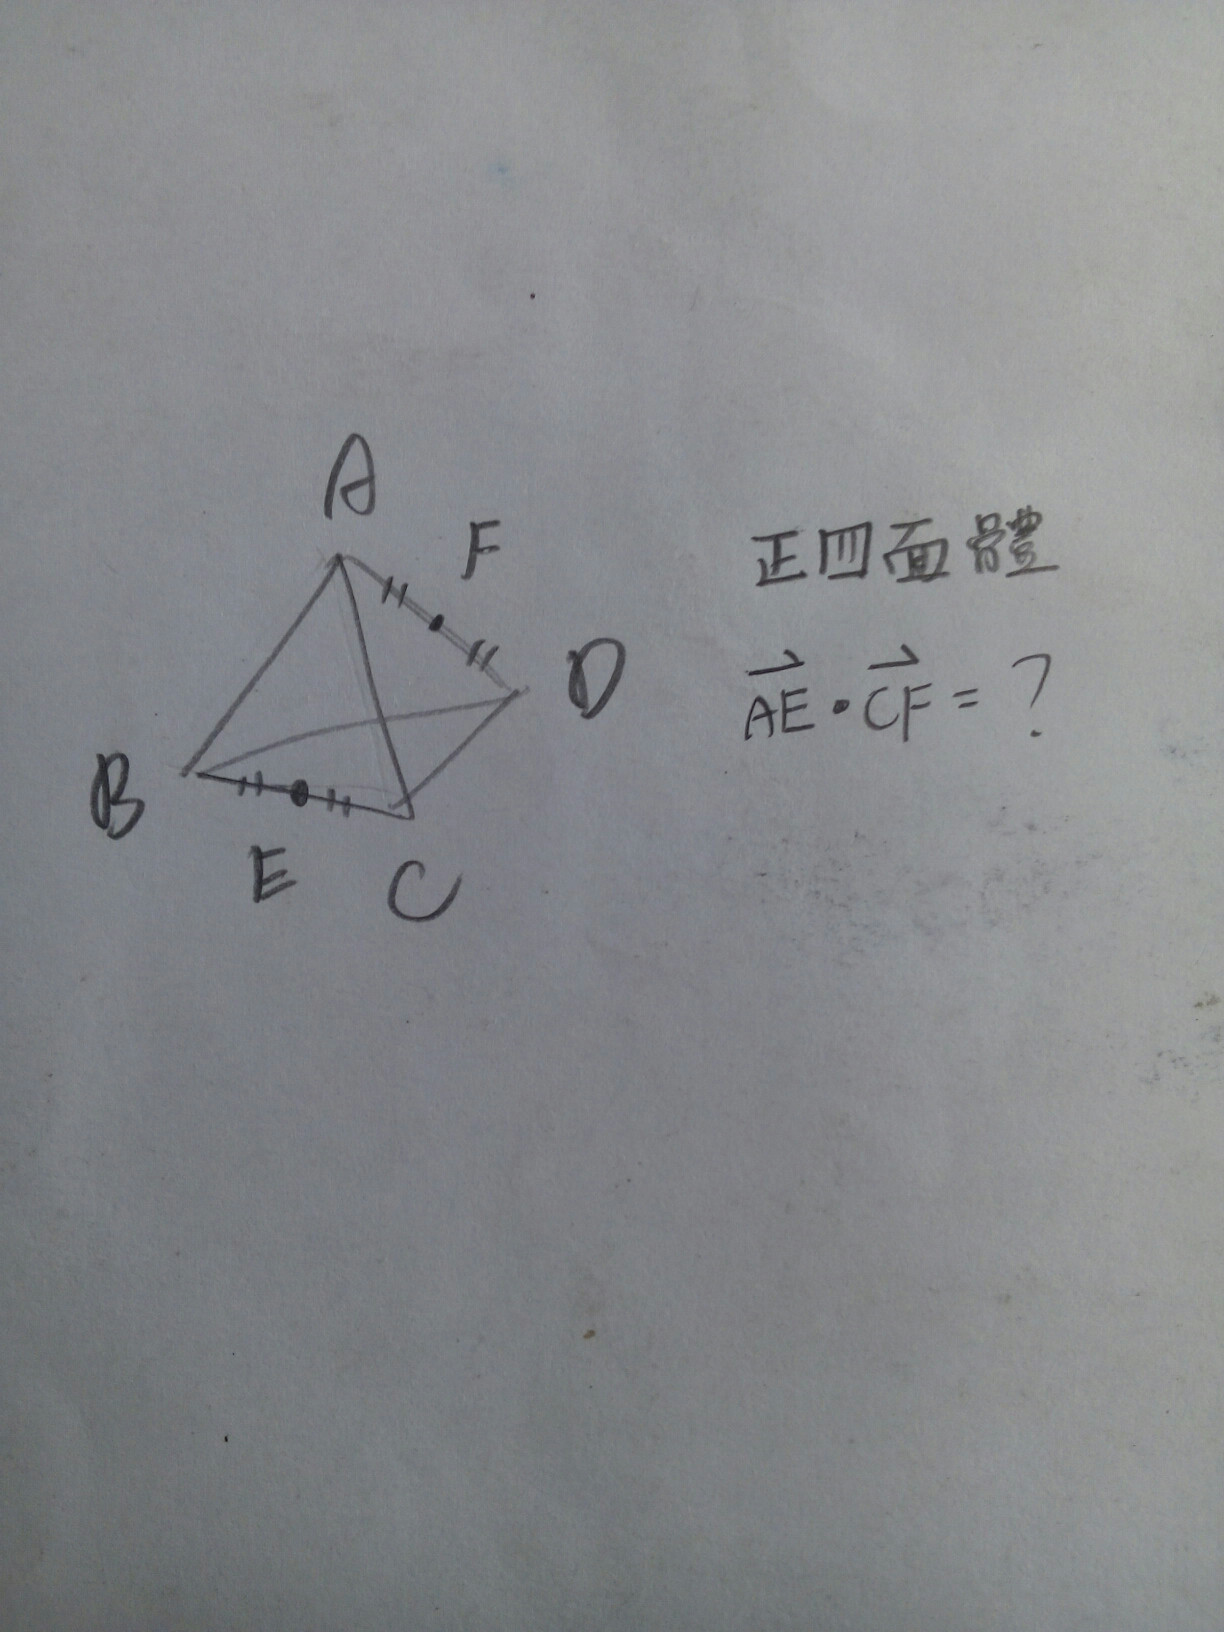 A
F
D
B
E
C
正四面體
AE⃗·CF⃗=?